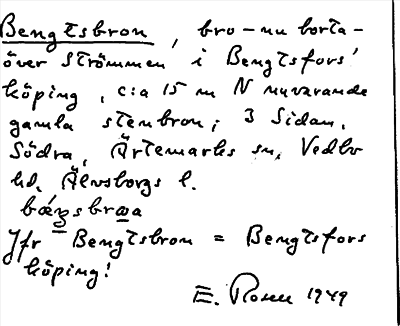 Bengtsbron, bro - nu borta -
över Strömmen i Bengtsfors'
köping, c:a 15 m N nuvarande
gamla stenbron; 3 Sidan,
Södra, Ärtemarks sn, Vedbo
hd, Älvsborgs l.
Jfr Bengtsbron = Bengtsfors
köping!
E. Rosen 1949